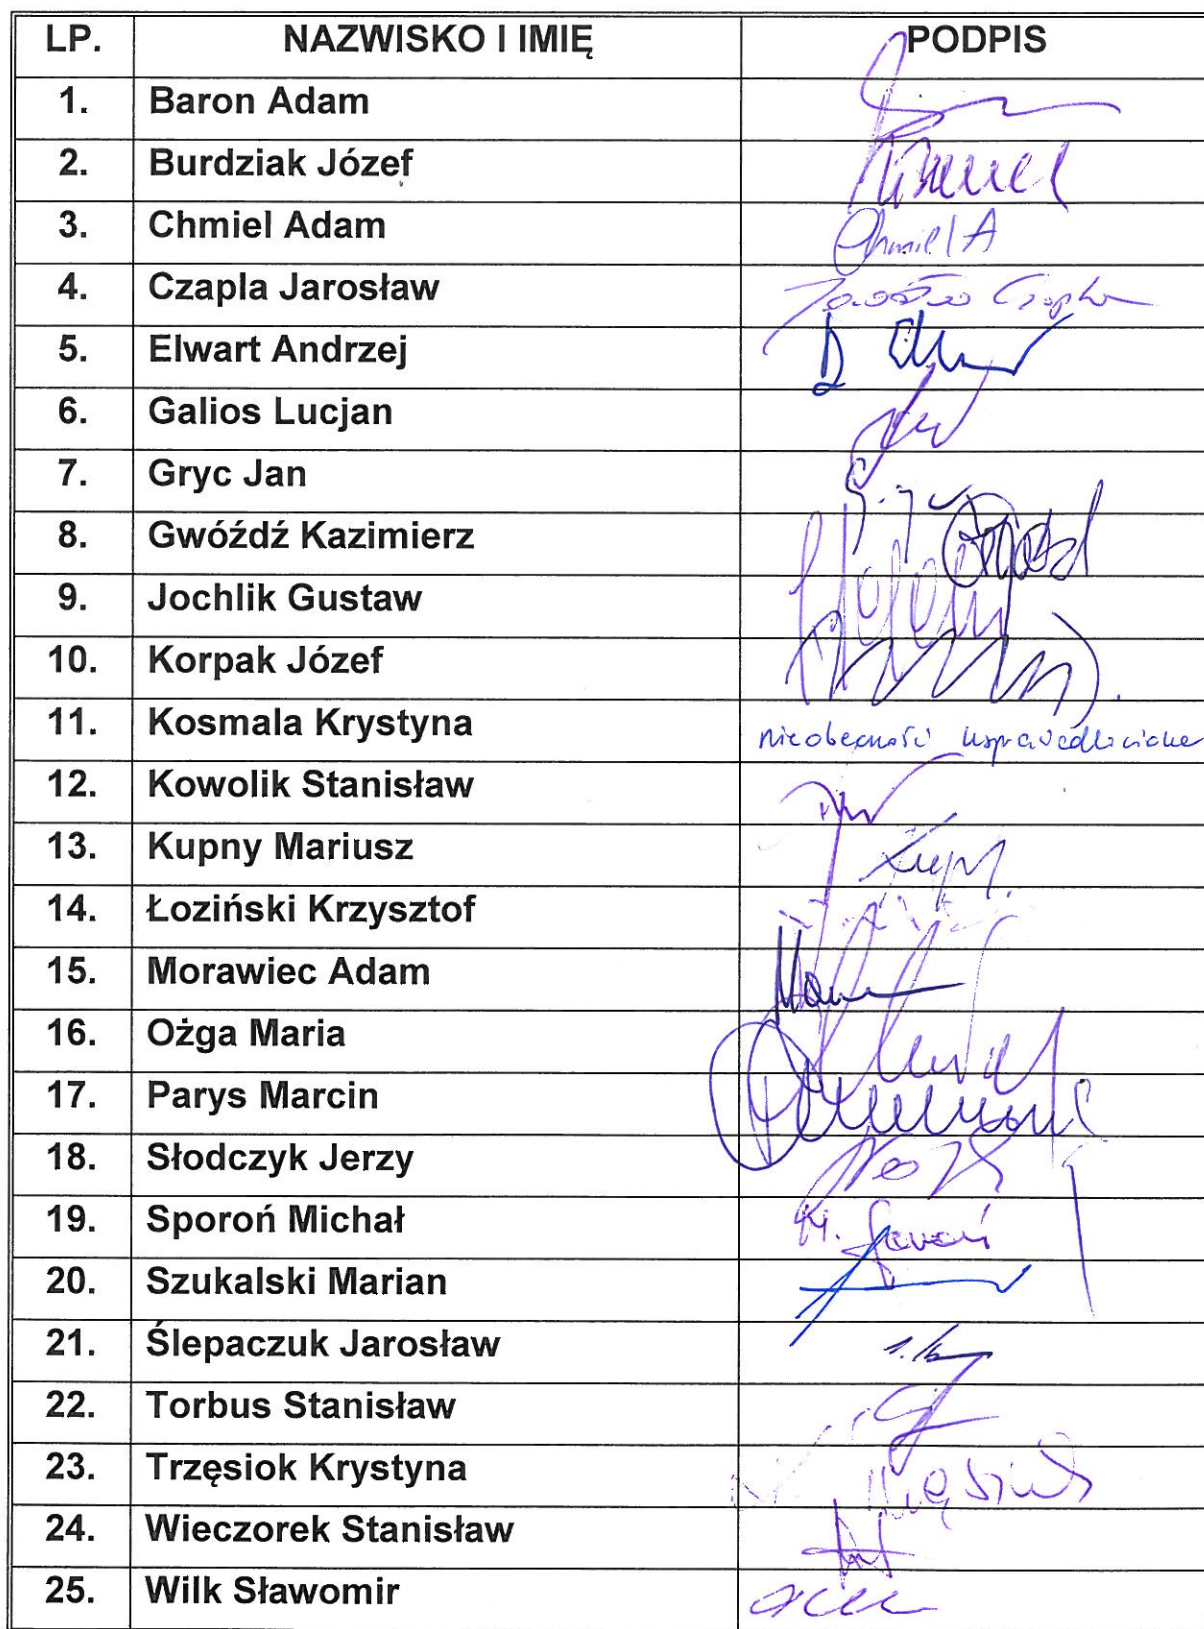 LP. NAZWISKO I IMIĘ PODPIS
1. Baron Adam
2. Burdziak Józef
3. Chmiel Adam Chmiel A
4. Czapla Jarosław
5. Elwart Andrzej
6. Galios Lucjan
7. Gryc Jan
8. Gwóźdź Kazimierz
9. Jochlik Gustaw
10. Korpak Józef
11. Kosmala Krystyna nieobecność usprawiedliwiona
12. Kowolik Stanisław
13. Kupny Mariusz
14. Łoziński Krzysztof
15. Morawiec Adam
16. Ożga Maria
17. Parys Marcin
18. Słodczyk Jerzy
19. Sporoń Michał M. Sporoń
20. Szukalski Marian
21. Ślepaczuk Jarosław
22. Torbus Stanisław
23. Trzęsiok Krystyna
24. Wieczorek Stanisław
25. Wilk Sławomir